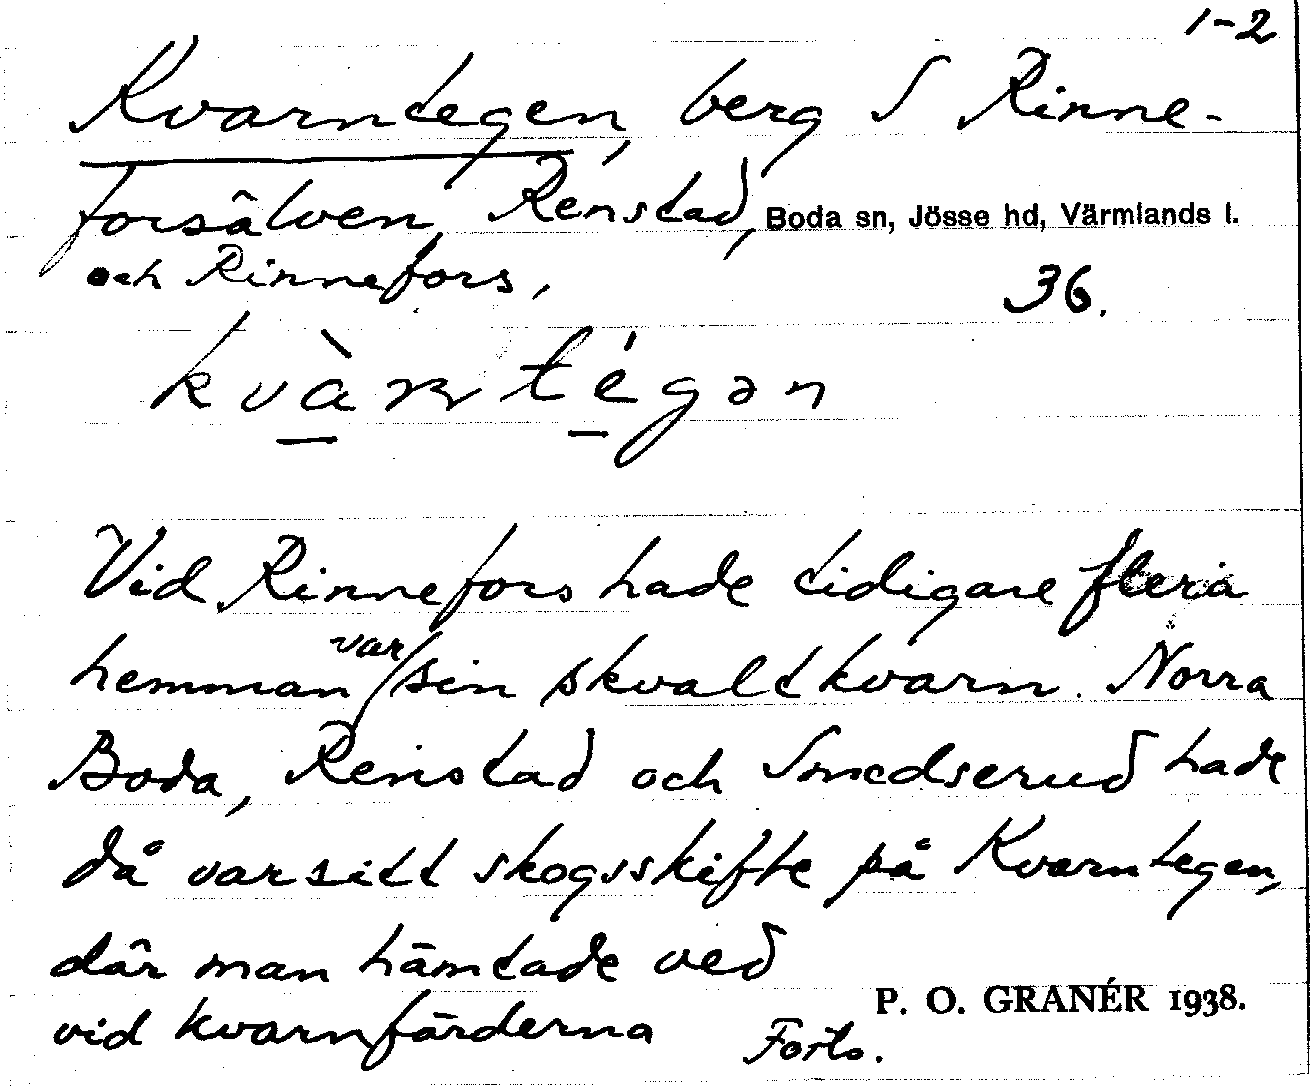 1-2
Kvarntegen, berg S Rinne-
forsälven, Renstad, Boda sn, Jösse hd, Värmlands l.
och Rinnefors,
36.
kvàrntégən
Vid Rinnefors hade tidigare flera
hemman var sin skvaltkvarn. Norra
Boda, Renstad och Smedserud hade
då varsitt skogsskifte på Kvarntegen,
där man hämtade ved
vid kvarnfärderna
P. O. GRANÉR 1938.
Forts.